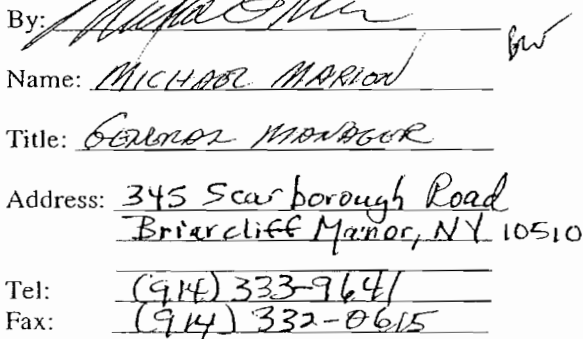 By:
Name: MICHAEL MARION
Title: GENERAL MANAGER
Address: 345 Scarborough Road
Briarcliff Manor, NY 10510
Tel: (914) 333-9641
Fax: (914) 332-0615